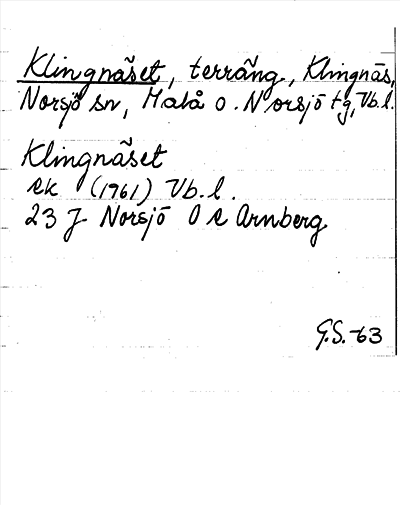 Klingnäset, terräng, Klingnäs,
Norsjö sn, Malå o. Norsjö tg, Vb.l.
Klingnäset
ek (1961) Vb.l.
23 J Norsjö O e Arnberg
G.S.-63